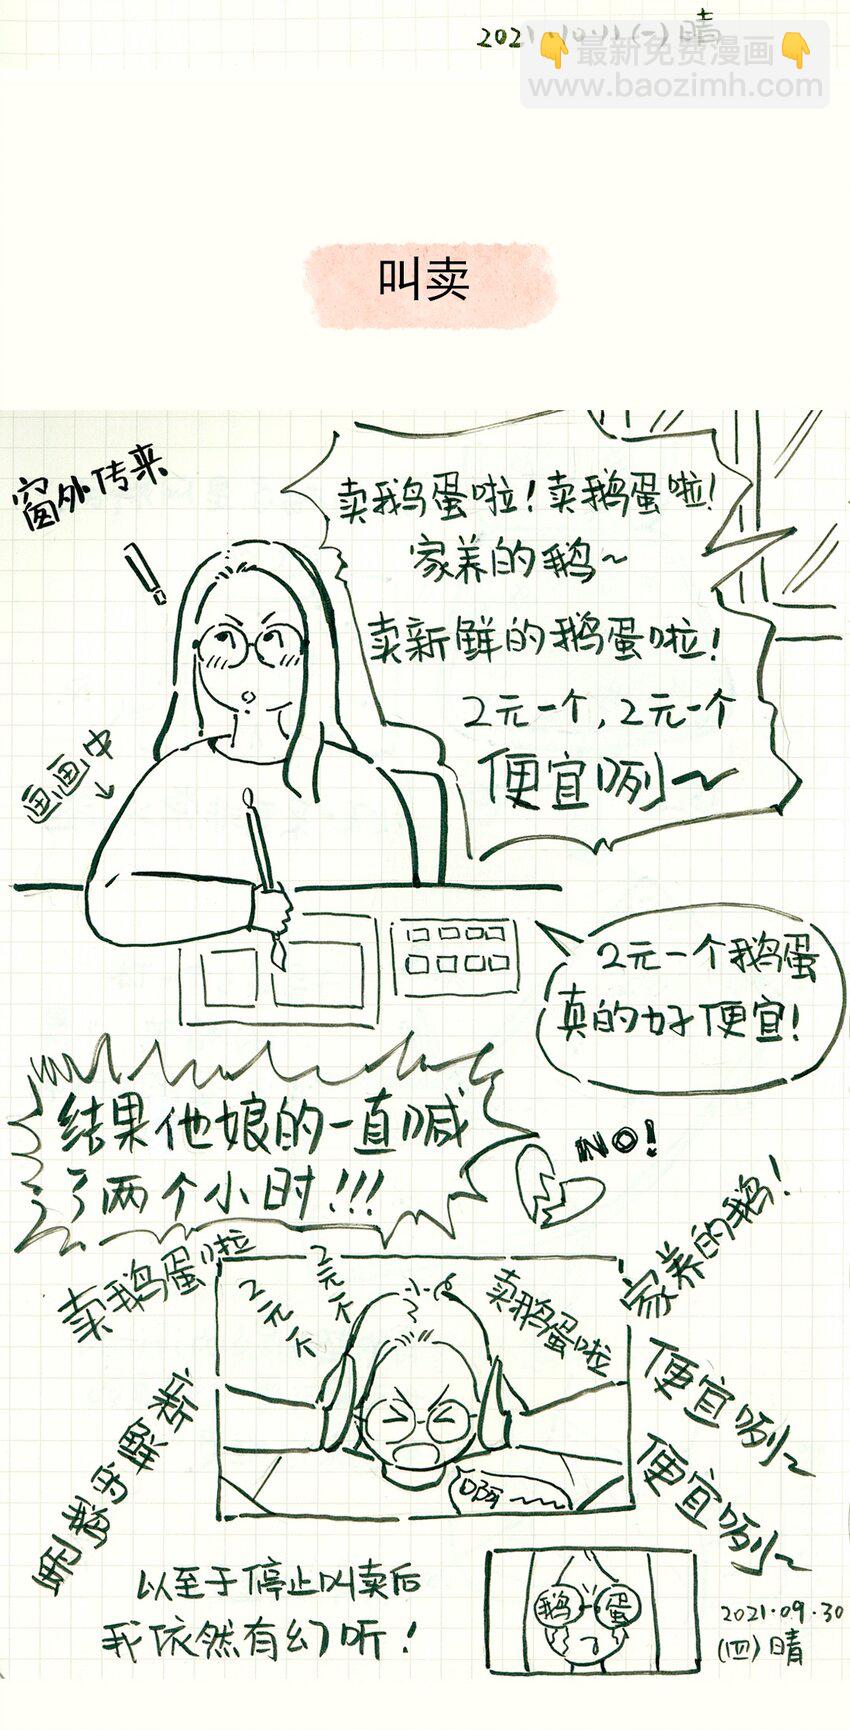 2021.10.11(一)晴
👇最新免费漫画👇
www.baozimh.com
叫卖
窗外传来
卖鹅蛋啦！卖鹅蛋啦！
家养的鹅~
卖新鲜的鹅蛋啦！
2元一个，2元一个
便宜咧~
画画中
2元一个鹅蛋
真的好便宜！
结果他娘的一直喊
了两个小时!!!
NO!
卖鹅蛋啦
2元一个
2元一个
卖鹅蛋啦
家养的鹅！
便宜咧~
便宜咧~
新鲜的鹅蛋
啊~~
以至于停止叫卖后
我依然有幻听！
鹅 蛋
2021.09.30
(四)晴